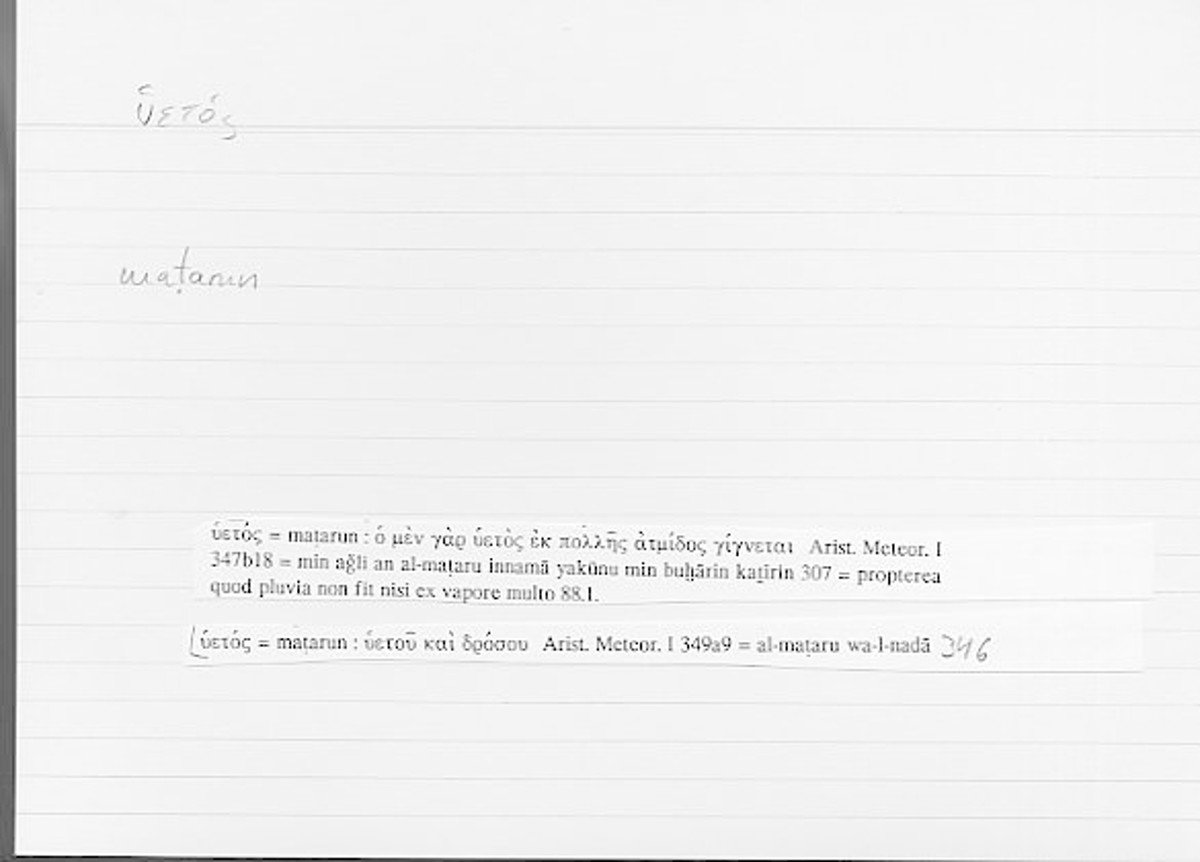 ὑετός
maṭarun
ὑετός = maṭarun : ὁ μὲν γὰρ ὑετὸς ἐκ πολλῆς ἀτμίδος γίγνεται Arist. Meteor. I
347b18 = min ağli an al-maṭaru innamā yakūnu min buḫārin kaṯīrin 307 = propterea
quod pluvia non fit nisi ex vapore multo 88.1.
⌊ὑετός = maṭarun : ὑετοῦ καὶ δρόσου Arist. Meteor. I 349a9 = al-maṭaru wa-l-nadā 346